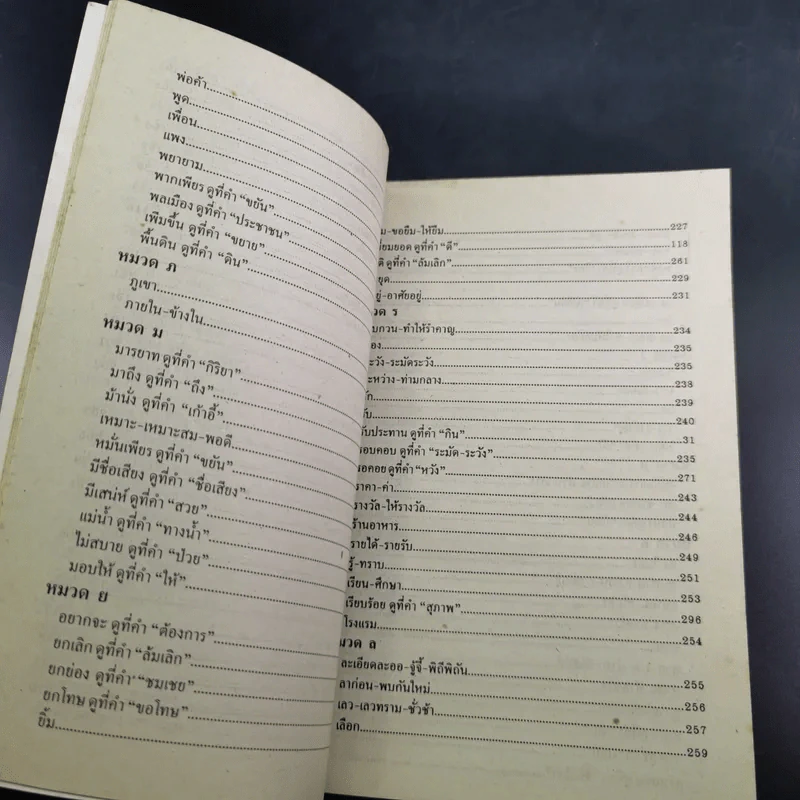 พ่อค้า
พูด
เพื่อน
แพง
พยายาม
พากเพียร ดูที่คำ "ขยัน"
พลเมือง ดูที่คำ "ประชาชน"
เพิ่มขึ้น ดูที่คำ "ขยาย"
พื้นดิน ดูที่คำ "ดิน"
หมวด ภ
ภูเขา
ภายใน-ข้างใน
หมวด ม
มารยาท ดูที่คำ "กิริยา"
มาถึง ดูที่คำ "ถึง"
ม้านั่ง ดูที่คำ "เก้าอี้"
เหมาะ-เหมาะสม-พอดี
หมั่นเพียร ดูที่คำ "ขยัน"
มีชื่อเสียง ดูที่คำ "ชื่อเสียง"
มีเสน่ห์ ดูที่คำ "สวย"
แม่น้ำ ดูที่คำ "ทางน้ำ"
ไม่สบาย ดูที่คำ "ป่วย"
มอบให้ ดูที่คำ "ให้"
หมวด ย
อยากจะ ดูที่คำ "ต้องการ"
ยกเลิก ดูที่คำ "ล้มเลิก"
ยกย่อง ดูที่คำ "ชมเชย"
ยกโทษ ดูที่คำ "ขอโทษ"
ยิ้ม
ม-ขอยืม-ให้ยืม 227
ี่ยมยอด ดูที่คำ "ดี" 118
ติ ดูที่คำ "ล้มเลิก" 261
ยุด 229
ยู่-อาศัยอยู่ 231
วด ร
บกวน-ทำให้รำคาญ 234
อง 235
ะวัง-ระมัดระวัง 235
ะหว่าง-ท่ามกลาง 238
ัก 239
ับ 240
ับประทาน ดูที่คำ "กิน" 31
รอบคอบ ดูที่คำ "ระมัด-ระวัง" 235
รอคอย ดูที่คำ "หวัง" 271
ราคา-ค่า 243
รางวัล-ให้รางวัล 244
ร้านอาหาร 246
รายได้-รายรับ 249
รู้-ทราบ 251
เรียน-ศึกษา 253
เรียบร้อย ดูที่คำ "สุภาพ" 296
โรงแรม 254
มวด ล
ละเอียดละออ-จู้จี้-พิถีพิถัน 255
ลาก่อน-พบกันใหม่ 256
เลว-เลวทราม-ชั่วช้า 257
เลือก 259